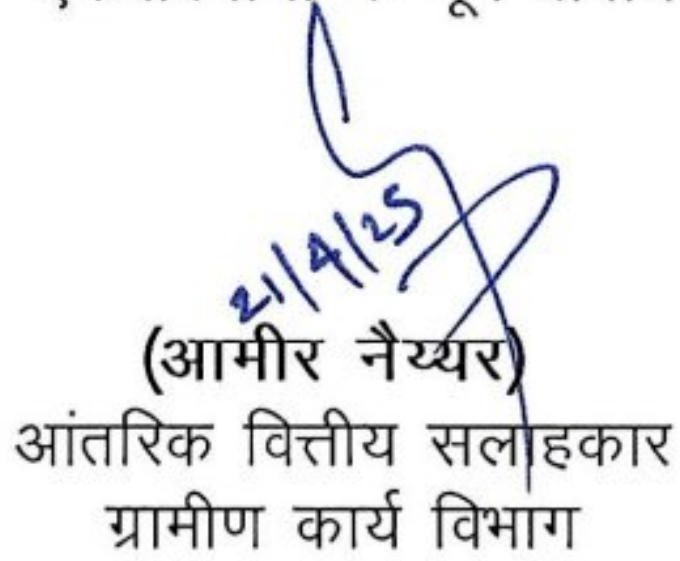 21/4/25
(आमीर नैय्यर)
आंतरिक वित्तीय सलाहकार
ग्रामीण कार्य विभाग